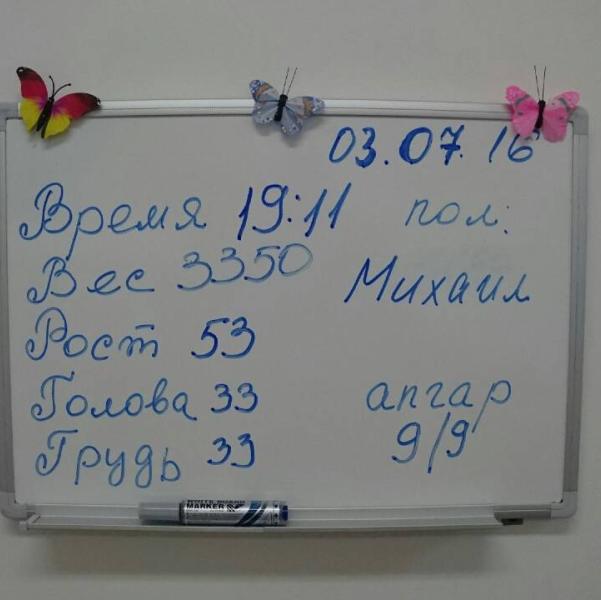 03.07.16
Время 19:11 пол:
Вес 3350 Михаил
Рост 53
Голова 33 апгар
Грудь 33 9/9
WHITE BOARD
MARKER